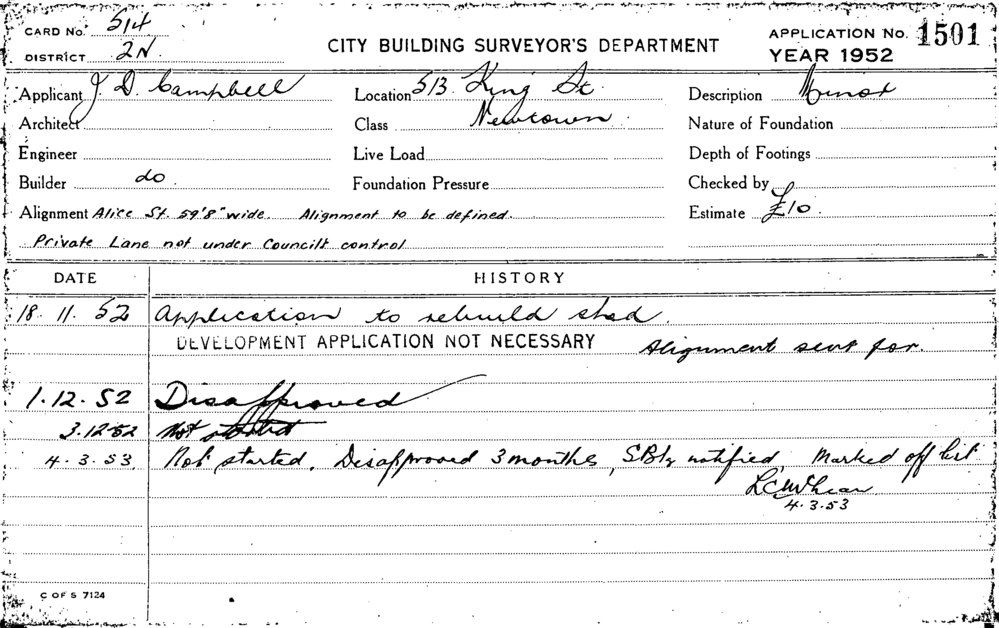 CARD No. 514
DISTRICT 2N
CITY BUILDING SURVEYOR'S DEPARTMENT
APPLICATION No. 1501
YEAR 1952
Applicant J. D. Campbell Location 513. King St. Description Minor
Architect Class Newtown Nature of Foundation
Engineer Live Load Depth of Footings
Builder do. Foundation Pressure Checked by
Alignment Alice St. 59'8" wide. Alignment to be defined. Estimate £10.
Private Lane not under Council's control
DATE HISTORY
18. 11. 52 Application to rebuild shed.
DEVELOPMENT APPLICATION NOT NECESSARY Alignment sent for.
1. 12. 52 Disapproved
3.12.52 Not started
4. 3. 53. Not started. Disapproved 3 months, notified, Marked off list
4. 3. 53
C OF S 7124